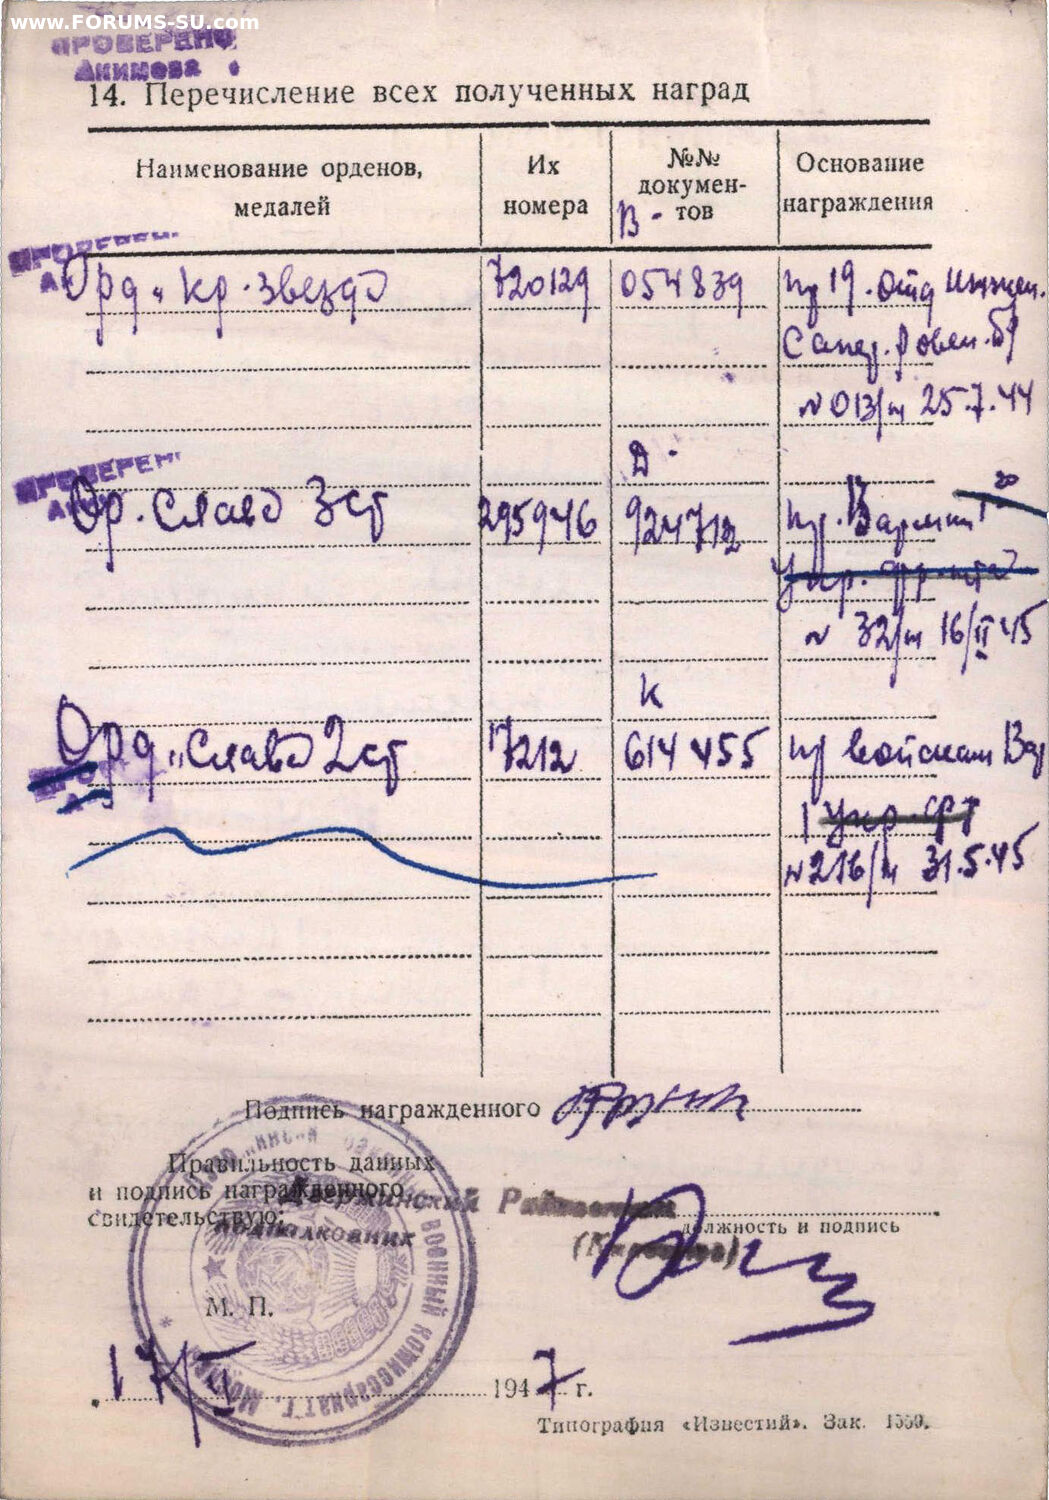 www.FORUMS-SU.com
ПРОВЕРЕНО
Акимова
14. Перечисление всех полученных наград
Наименование орденов, медалей
Их номера
№№ докумен-тов
Основание награждения
В-
Орд „Кр. Звезда
720129
054839
пр 19. отд инжен.
Сапер. Ровен. бр
N 013/н 25.7.44
Д-
Ор. Слава 3 ст
295946
924712
пр.
Укр. фронта
N 32/н 16/II 45
К
Орд „Слава 2 ст
17212
614455
пр войскам
1 Укр. фр
N 216/н 31.5.45
Подпись награжденного
Правильность данных
и подпись награжденного
свидетельствую:
Дзержинский
подполковник
должность и подпись
М. П.
военный комиссариат г. Москвы
194 7 г.
Типография «Известий». Зак. 1550.